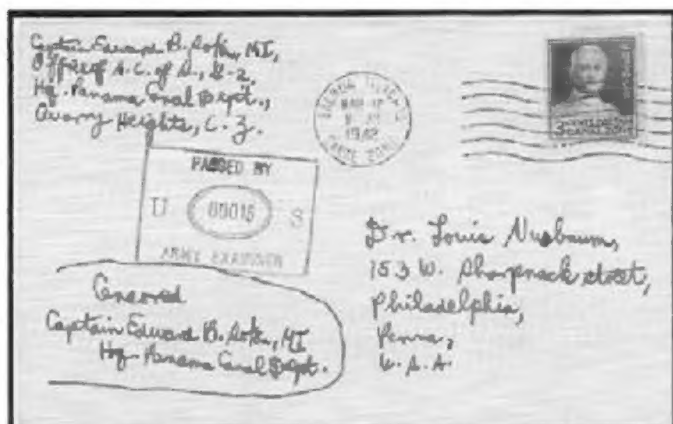 Captain Edward B. MI,
Office of A.C. of S., G-2,
Hq. Panama Canal Dept.,
Quarry Heights, C. Z.
1942
CANAL ZONE
3 CENTS
CANAL ZONE
PASSED BY
U 00015 S
ARMY EXAMINER
Censored
Captain Edward B. MI
Hq. Panama Canal Dept.
Dr. Louis Nusbaum,
153 W. Sharpnack street,
Philadelphia,
Penna,
U. S. A.